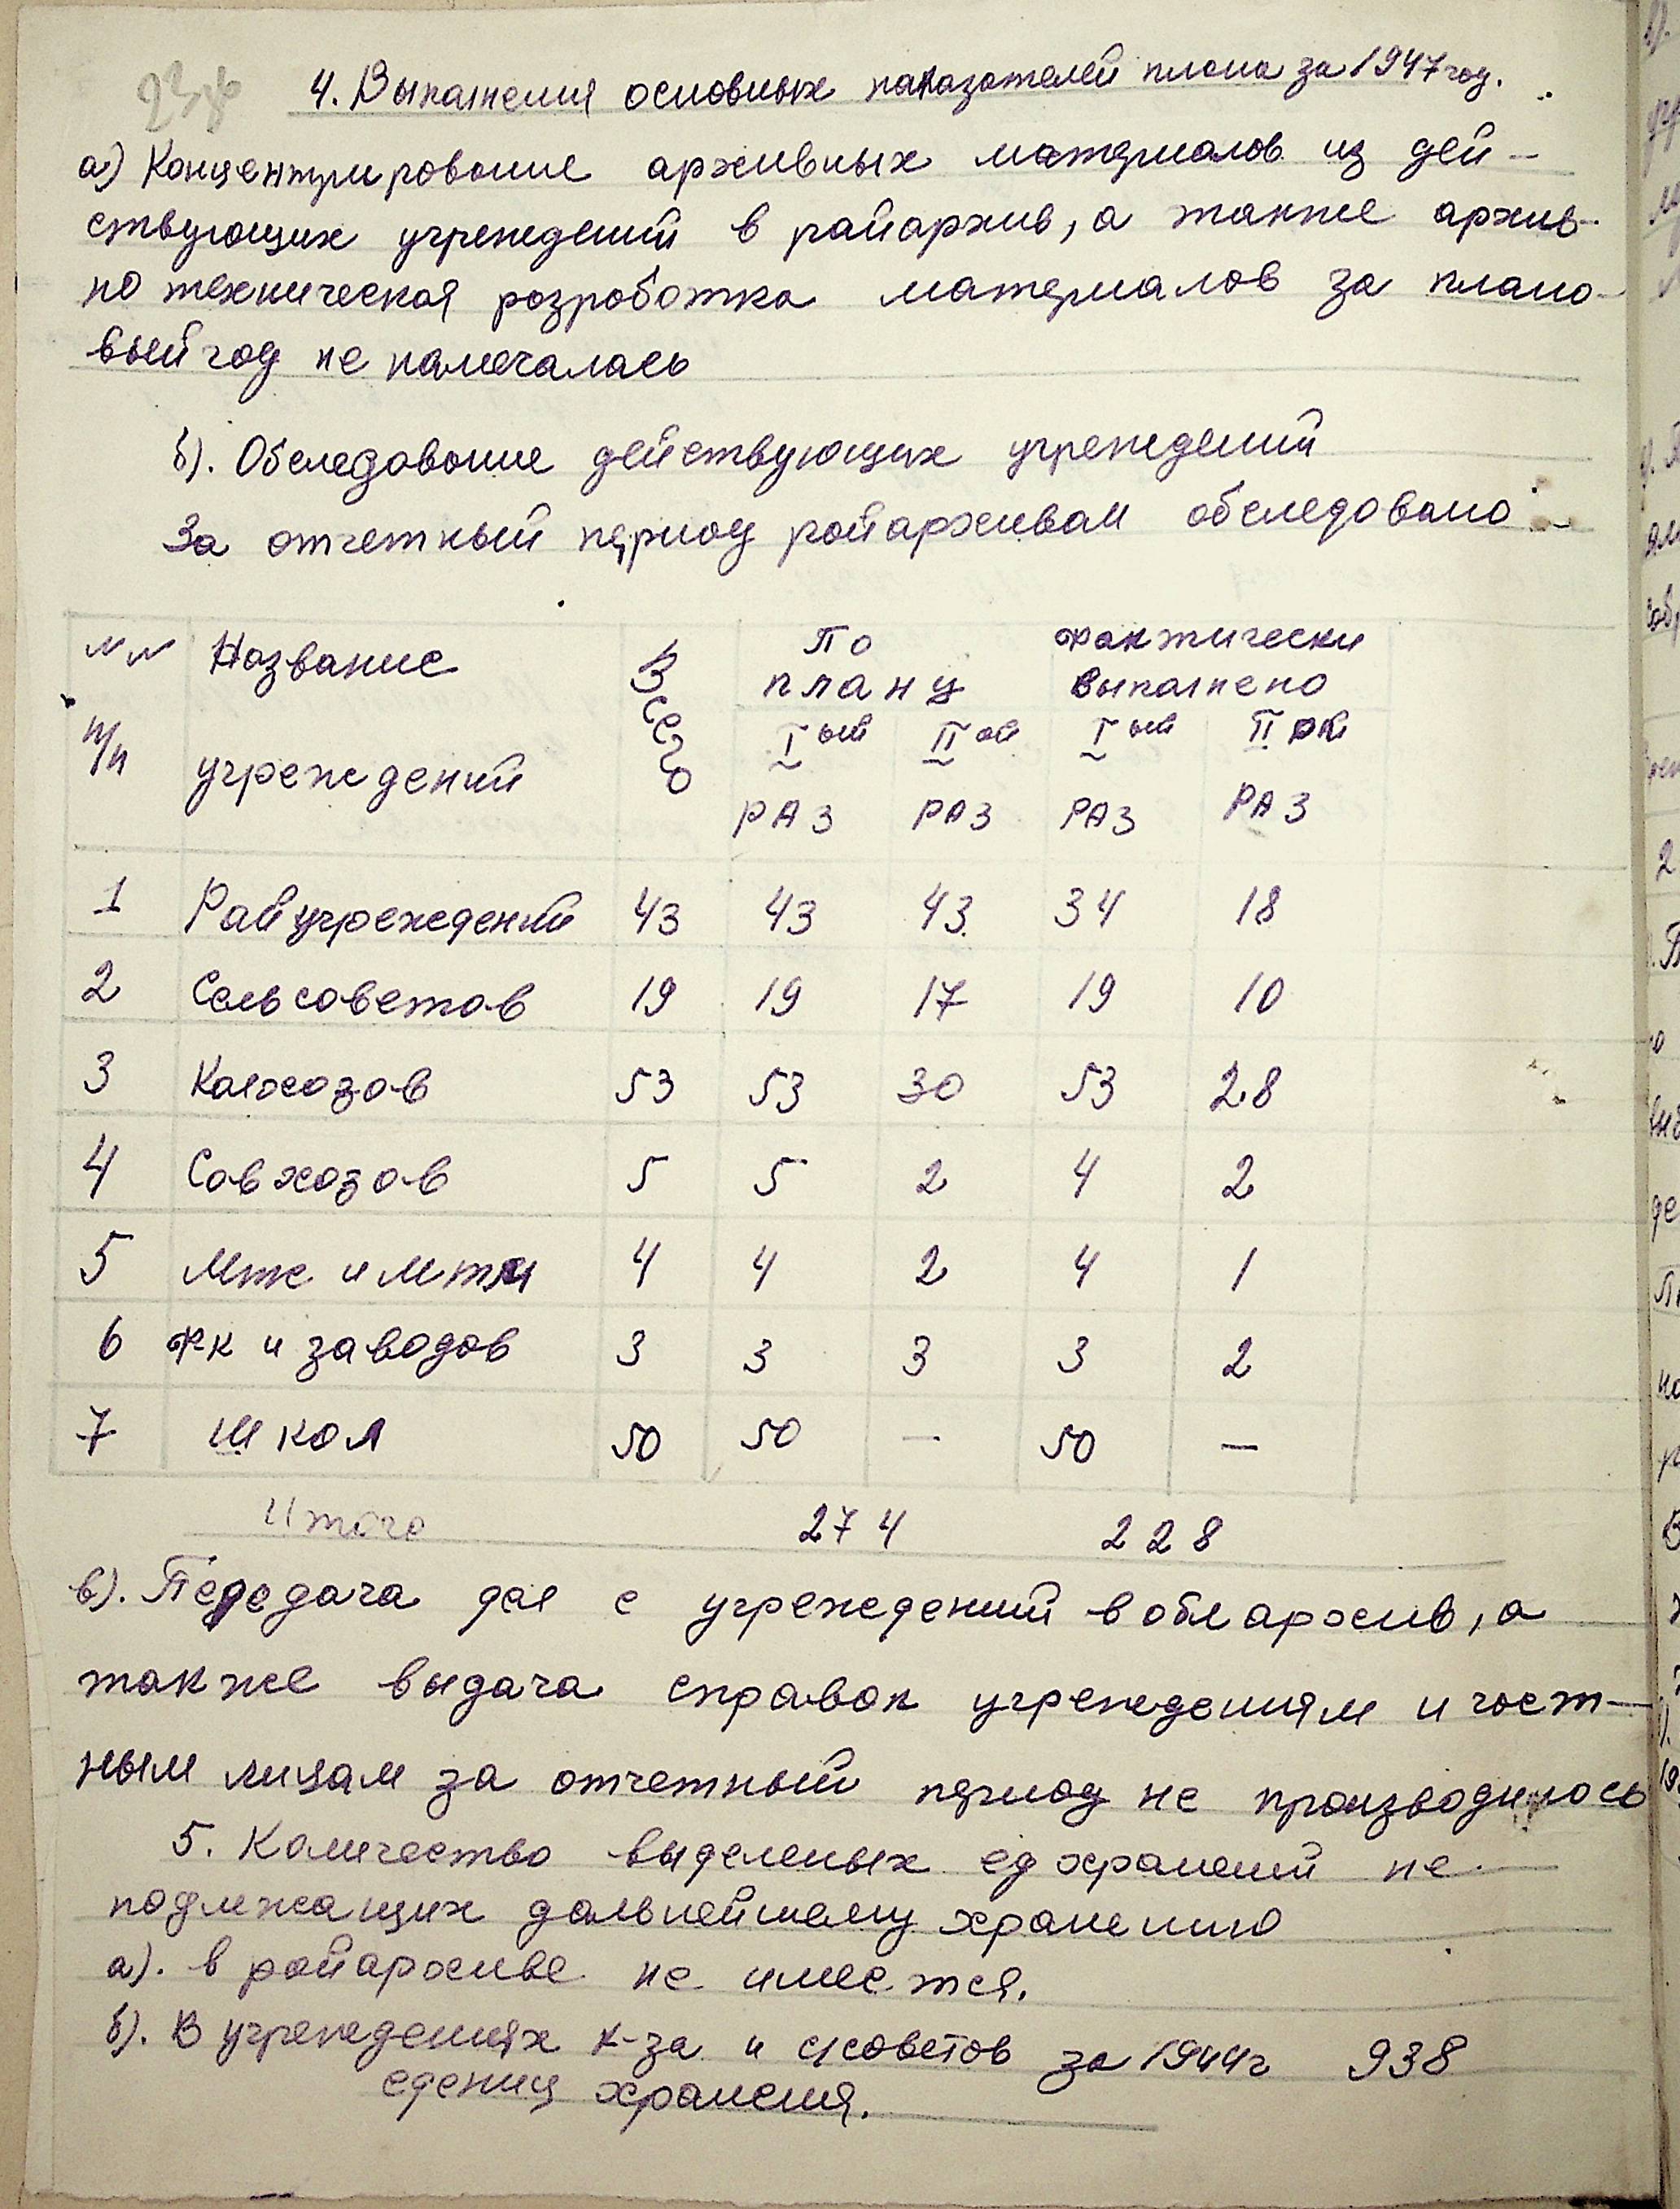 4. Выполнения основных показателей плана за 1947 год.
а) Концентрирование архивных материалов из дей-
ствующих учреждений в райархив, а также архив-
но техническая розроботка материалов за плано-
вый год не намечалась
б). Обследование действующих учреждений
За отчетный период райархивом обследовано
№№ Название Всего По фактически
плану выполнено
п/п учреждений I ый II ой I ый II ой
РАЗ РАЗ РАЗ РАЗ
1 Райучреждений 43 43 43 34 18
2 Сельсоветов 19 19 17 19 10
3 Колхозов 53 53 30 53 28
4 Совхозов 5 5 2 4 2
5 Мтс и мтм 4 4 2 4 1
6 ФК и заводов 3 3 3 3 2
7 Школ 50 50 — 50 —
Итого 274 228
в). Передача дел с учреждений в облархив, а
также выдача справок учреждениям и част-
ным лицам за отчетный период не производилось
5. Количество выделеных ед хранений не
подлежащих дальнейшему хранению
а). в райархиве не имеется.
б). В учреждениях к-за и с/советов за 1944г 938
едениц хранения.